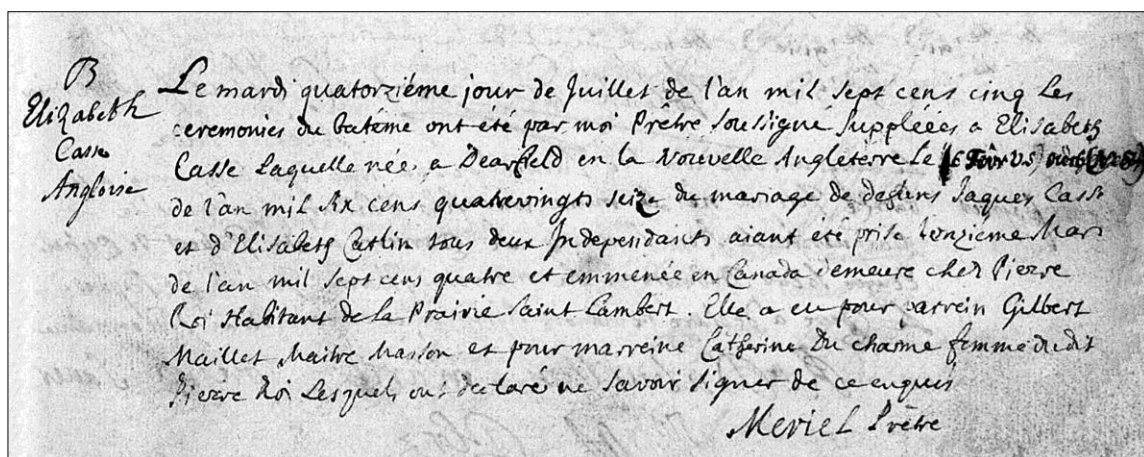 B
Elizabeth
Casse
Angloise
Le mardi quatorziéme jour de Juillet de l'an mil sept cens cinq les
ceremonies du batéme ont été par moi Prêtre soussigné suppléées a Elisabeth
Casse Laquelle née a Dearfield en la Nouvelle Angleterre Le
de l'an mil six cens quatrevingts seize du mariage de deffuns Jaques Casse
et d'Elisabeth Catlin tous deux Independants aiant été prise l'onzieme Mars
de l'an mil sept cens quatre et emmenée en Canada demeure chez Pierre
Roi Habitant de la Prairie Saint Lambert. Elle a eu pour parrein Gilbert
Maillet Maitre Masson et pour marreine Catherine Du charme femme dudit
Pierre Roi Lesquels ont declaré ne savoir signer de ce enquis
Meriel Prêtre